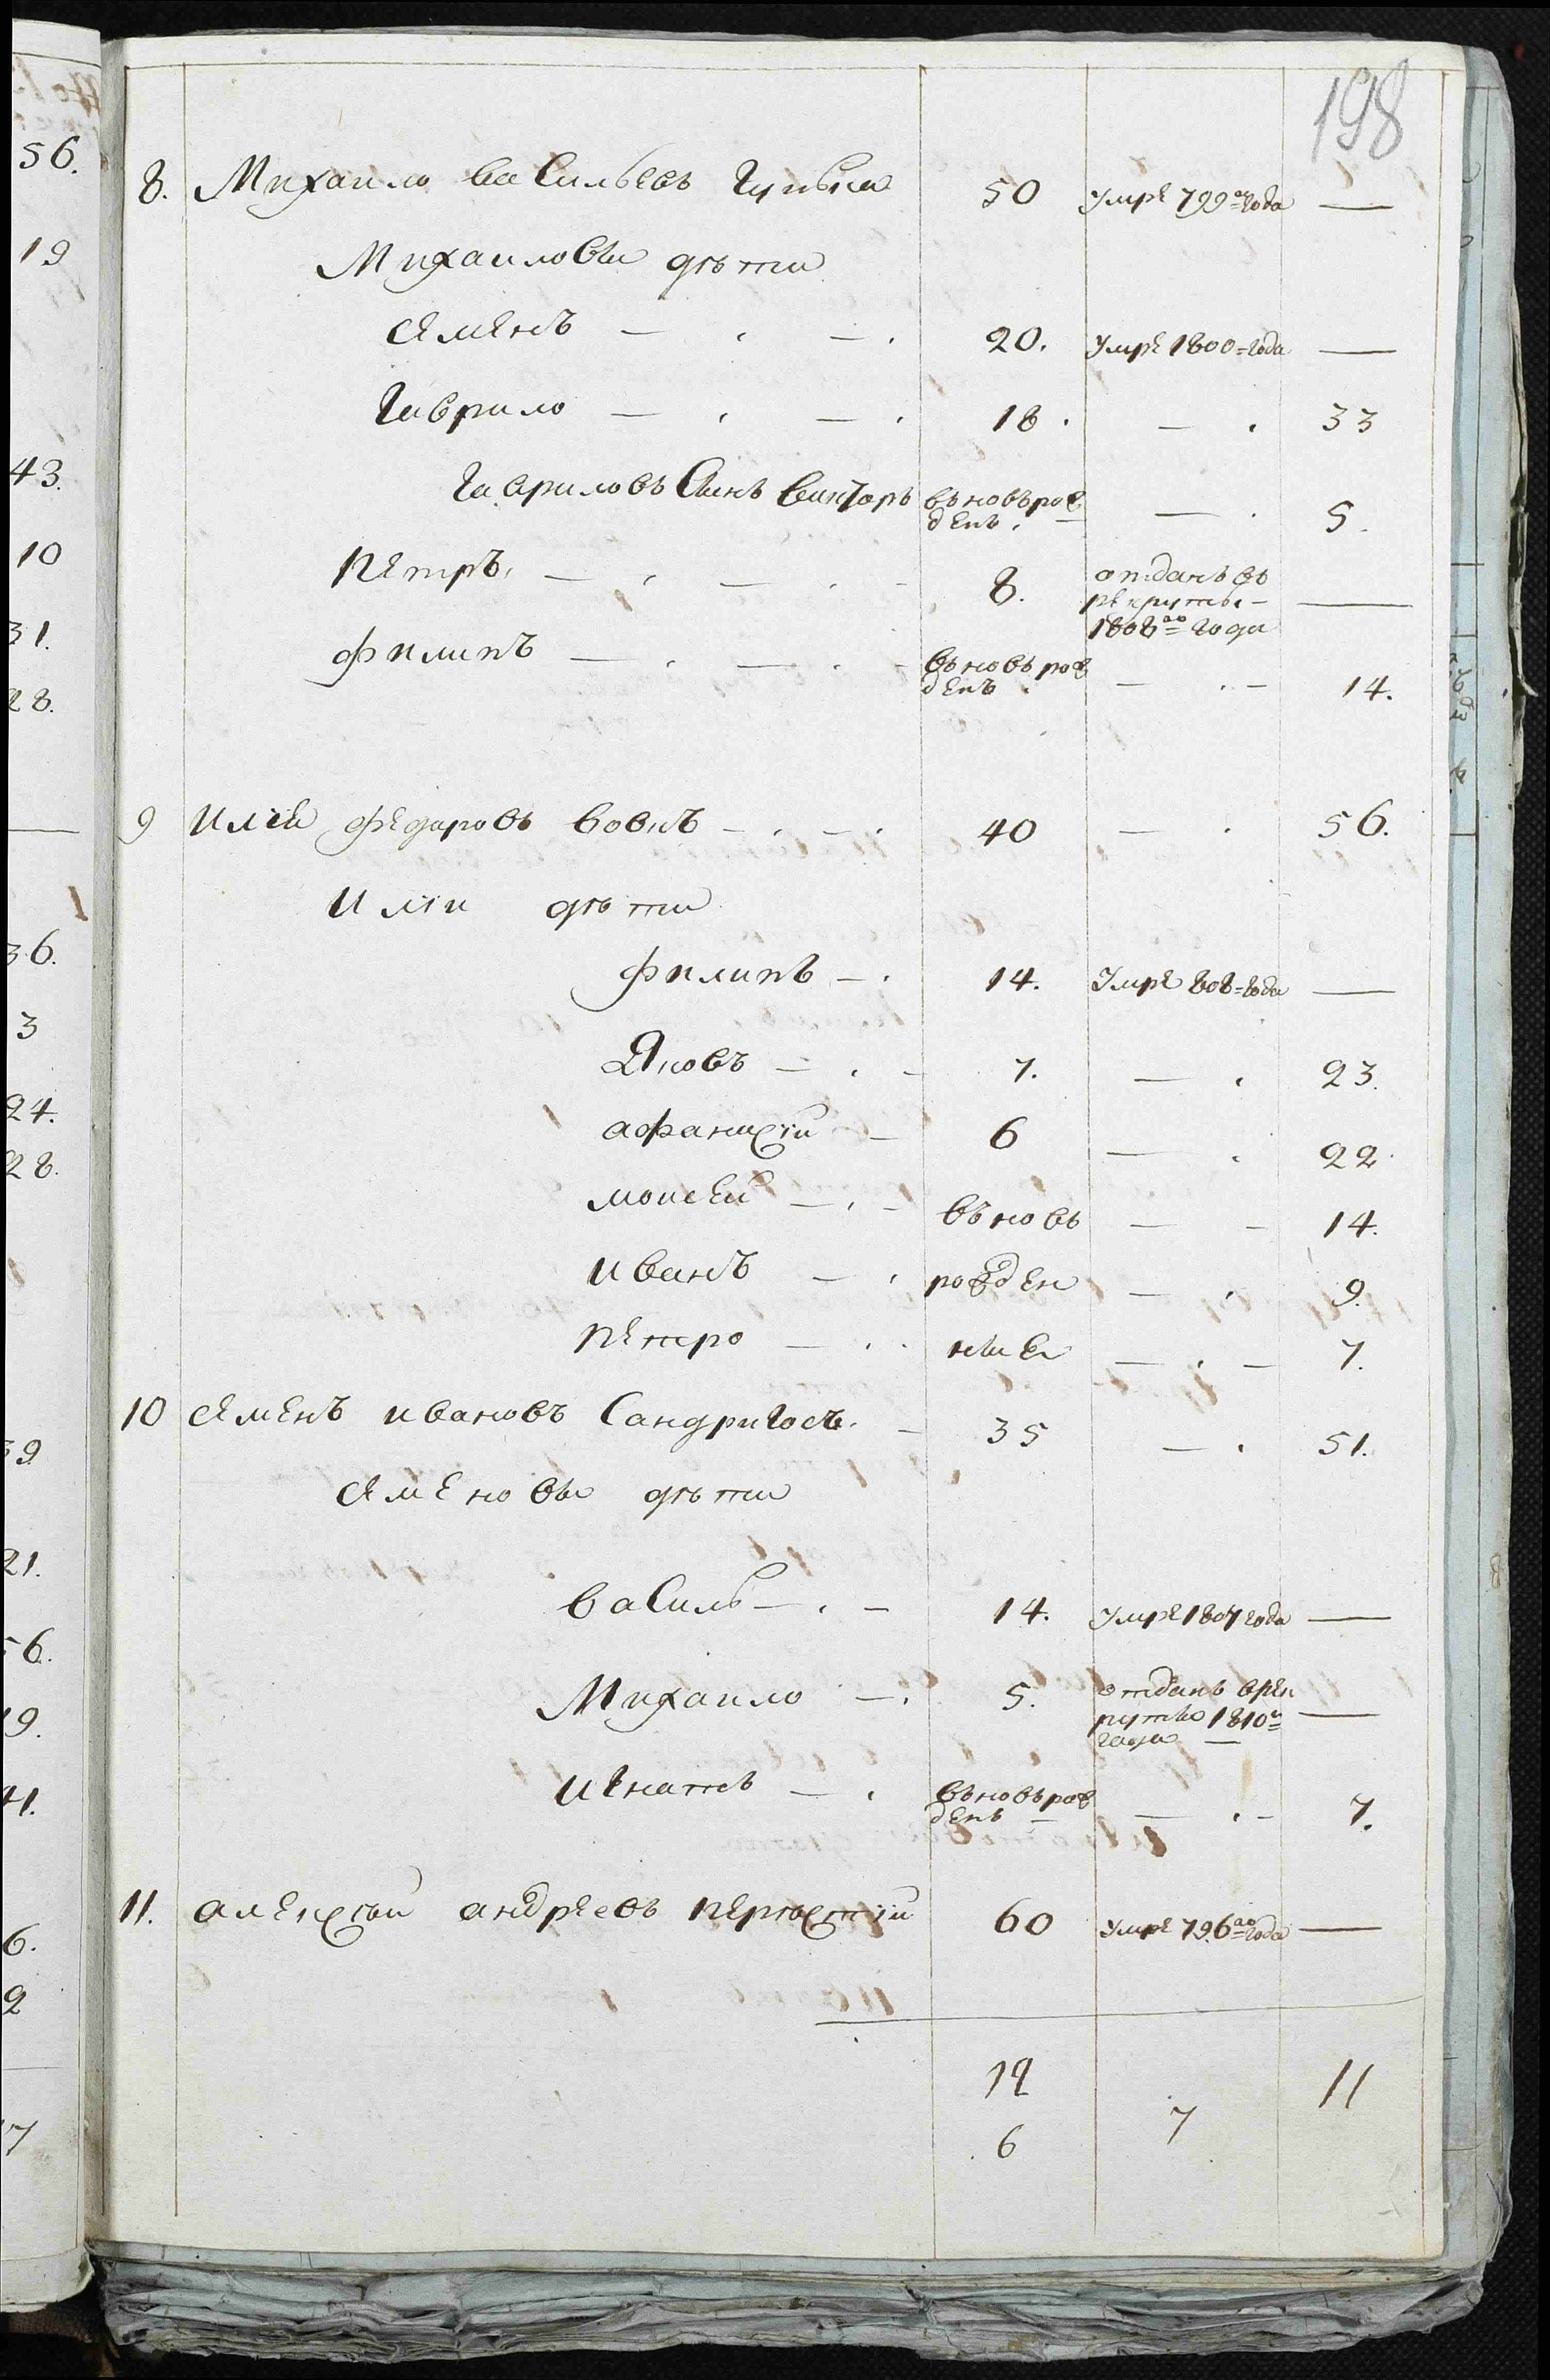 198
8. Михаило васильевъ 50 Умре 799го года —
Михаиловы дѣти
Семенъ — . — . 20. Умре 1800=года —
Гаврило — . — . 18. — . 33
Гавриловъ Сынъ Викторъ въновь рож
денъ. — . 5.
Петръ. — . — . - 8. отданъ въ
рекруты — —
1808го года
филипъ — . — . - въновь рож
денъ. — . - 14.
9 Илья федоровъ вовкъ — . — . 40 — . 56.
Ильи дѣти
филипъ — . 14. Умре 808=года —
Яковъ — . - 7. — . 23.
афанасий — 6 — . 22.
моисей — . - въновь — - 14.
иванъ — . рожден — . 9.
петро — . . ные — . - 7.
10 Семенъ ивановъ — 35 — . 51.
Семеновы дѣти
василь — . - 14. Умре 1807 года —
Михаило — . 5. отданъ врек
руты 1810го —
года —
игнатъ — . въновь рож
денъ — — . - 7.
11. алексѣй андреевъ 60 Умре 796го года —
12 11
6 7
56.
19
43.
10
31.
28.
—
1
36.
3
24.
28.
39
21.
56.
19.
41.
6.
2
17